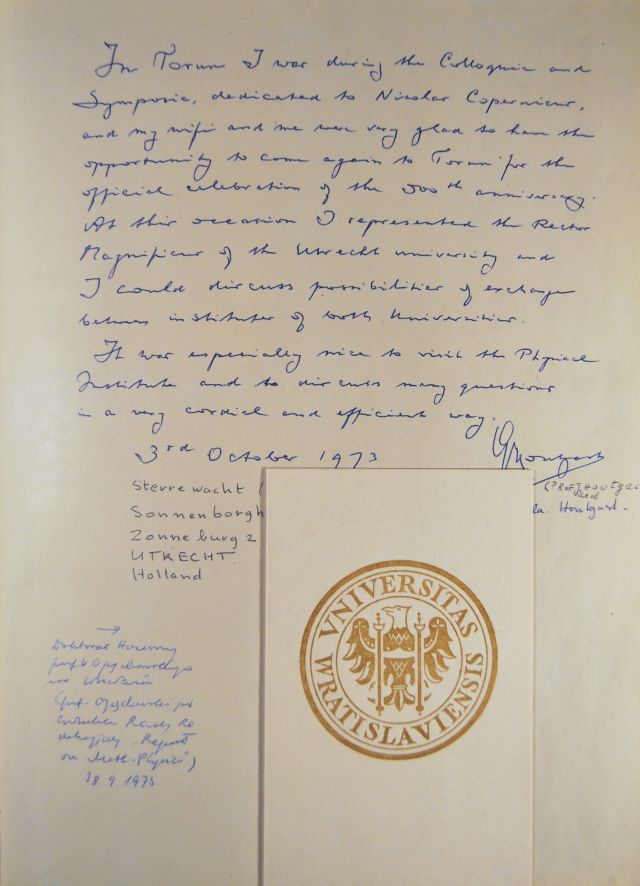 In Torun I was during the Colloquia and
Symposia, dedicated to Nicolas Copernicus,
and my wife and me were very glad to have the
opportunity to come again to Torun for the
official celebration of the 500th anniversary.
At this occasion I represented the Rector
Magnificus of the Utrecht university and
I could discuss possibilities of exchange
between institutes of both Universities.
It was especially nice to visit the Physical
Institute and to discuss many questions
in a very cordial and efficient way.
3rd October 1973
Sterrewacht
Sonnenborgh
Zonneburg 2
UTRECHT
Holland
(Prof J. Houtgast
Houtgast.
VNIVERSITAS
WRATISLAVIENSIS
→
Doktorat Honorowy
prof.
we Wrocławiu
Rady Re-
dakcyjnej "Reports
on Math. Physics")
28.9.1973